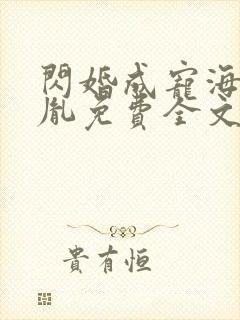 閃婚成寵海
胤免費全文
貴有恒